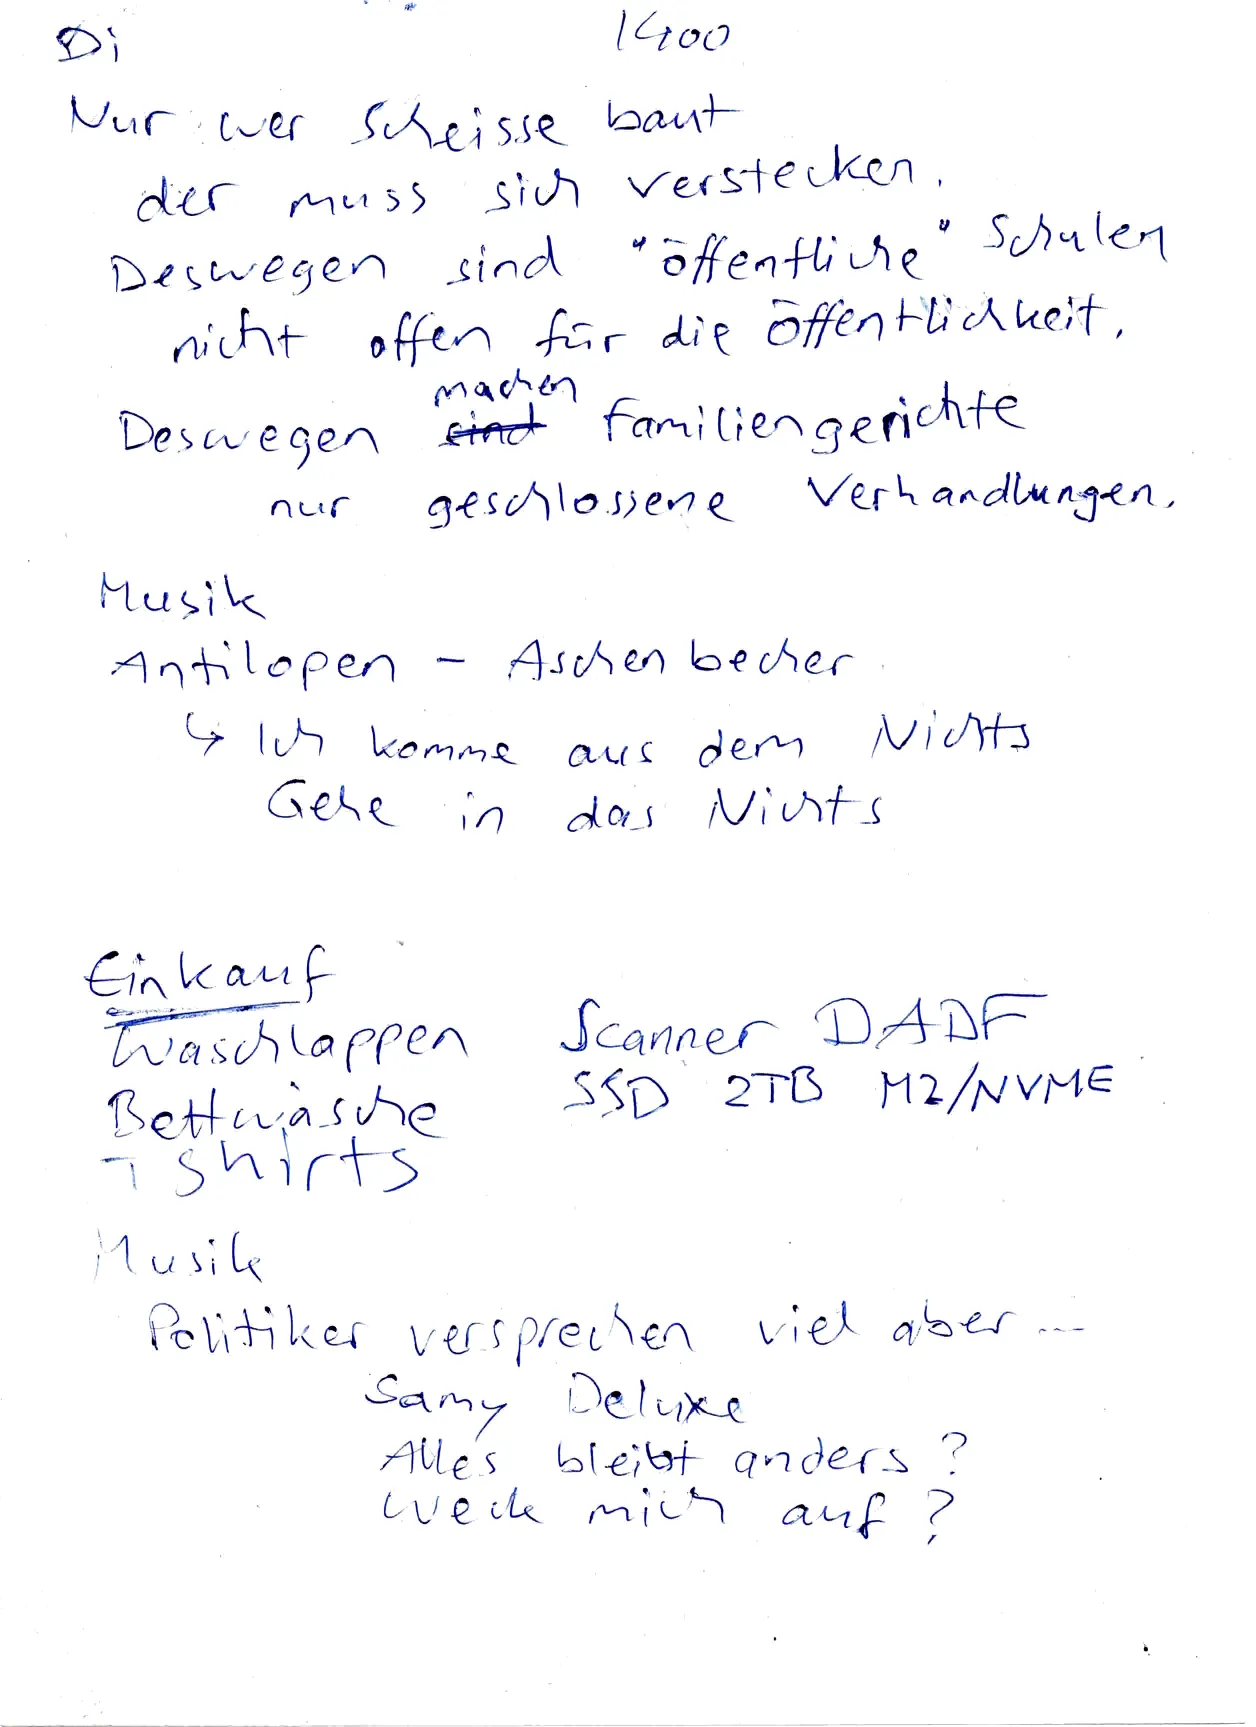 Di 1400
Nur wer Scheisse baut
der muss sich verstecken.
Deswegen sind "öffentliche" Schulen
nicht offen für die öffentlichkeit.
machen
Deswegen sind Familiengerichte
nur geschlossene Verhandlungen.
Musik
Antilopen - Aschenbecher
↳ Ich komme aus dem Nichts
Gehe in das Nichts
Einkauf
Waschlappen Scanner DADF
Bettwäsche SSD 2TB M2/NVME
T Shirts
Musik
Politiker versprechen viel aber ...
Samy Deluxe
Alles bleibt anders?
Weck mich auf?